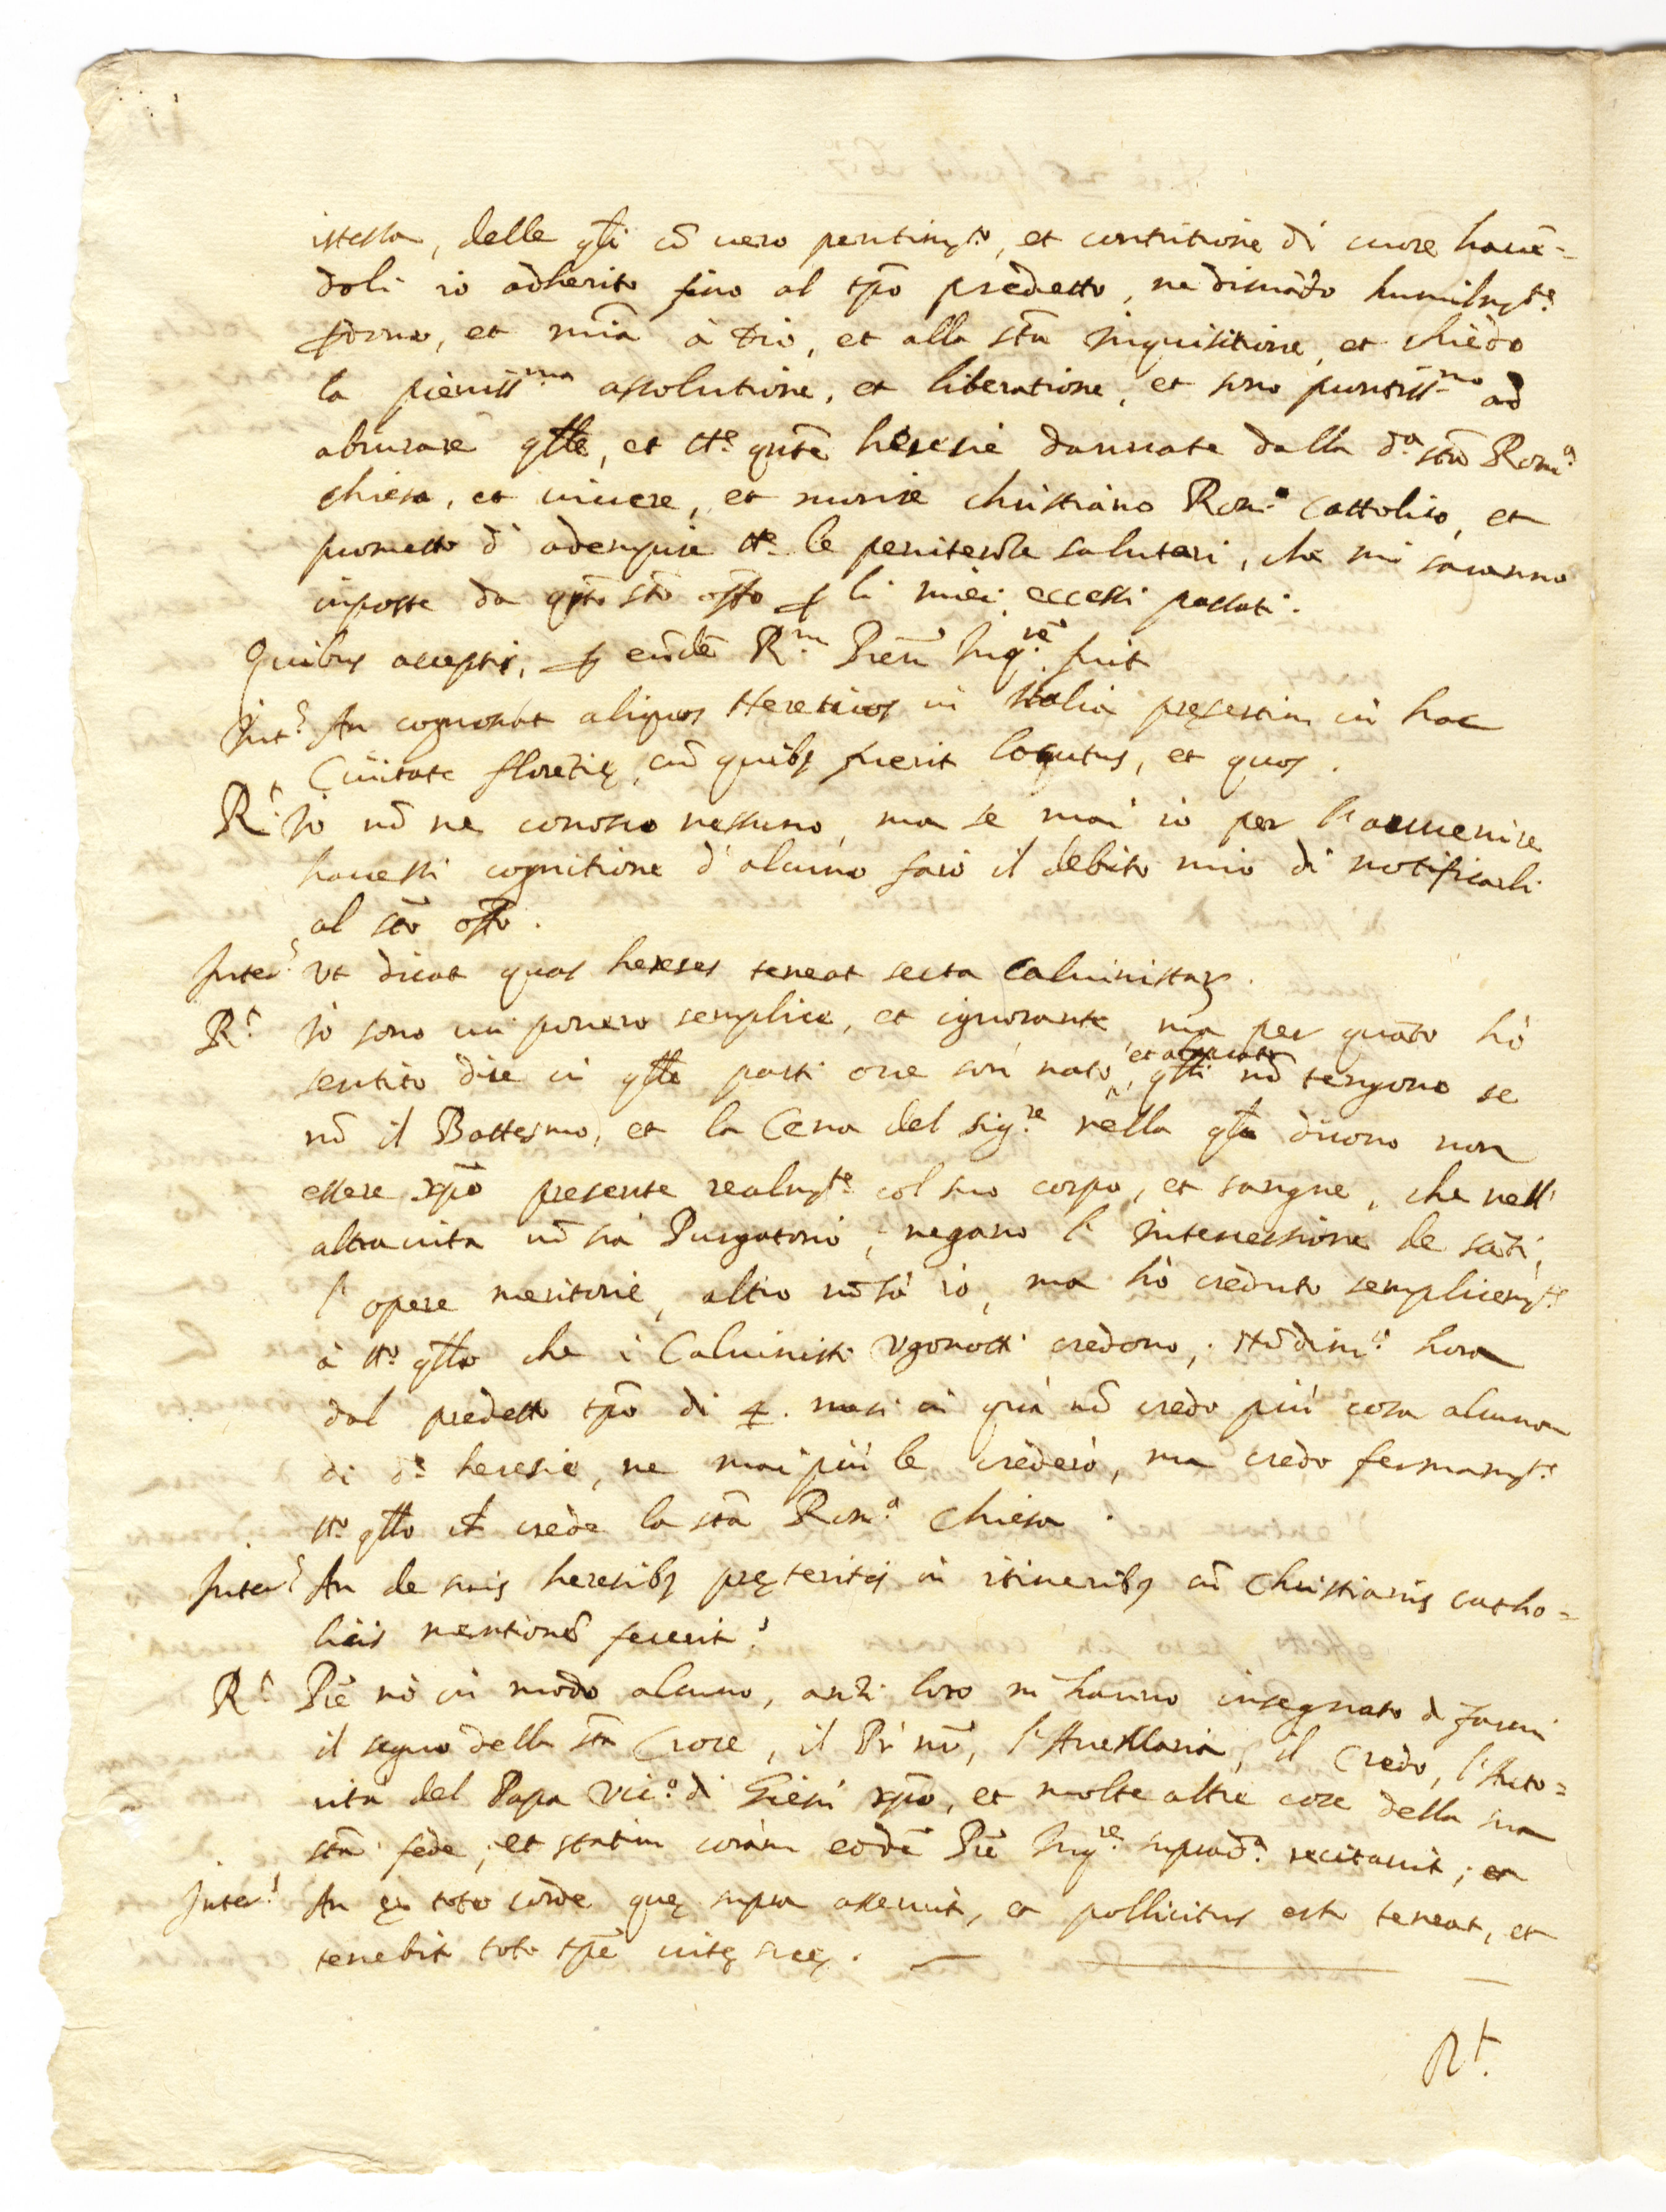 istessa, delle q̃li cõ uero pentim.to, et contritione di cuore hauẽ=
doli io adherito fino al tp̃o predetto, ne dimãdo humilm.te
p̱dono, et mi͂a à Dio, et alla sta͂ Inquisitione, et chiedo
la pieniss.ma assolutione, et liberatione, et sono prontiss.mo ad
abiurare q̃lle, et tt.e q̃nte heresie dannate dalla d.a sta͂ Rom.a
chiesa, et uiuere, et morire christiano Rom.o Cattolico, et
prometto d' adempire tt.e le penitenze salutari, che mi saranno
imposte da q̃sto sto͂ off.o p̱ li miei eccessi passati.
Quibus acceptis, p̱ eũdẽ R.m Prẽm Inq.rẽ fuit
Int.s An cognoscat aliquos Hereticos in Italia pręsertim in hac
Ciuitate florẽtię, cũ quibꝫ fuerit loqutus, et quos.
R.t Io nõ ne conosco nessuno, ma se mai io per l'auuenire
hauessi cognitione d'alcuno farò il debito mio di notificarli
al sto͂ off.o.
Inter.s Vt dicat quas hereses teneat secta Caluinistaꝝ.
R.t Io sono un pouero semplice, et ignorante, ma per quãto hò
sentito dire in q̃lle parti oue son nato, et alleuato q̃lli nõ tengono se
nõ il Battesmo, et la Cena del sig.re nella q̃le dicono non
essere xp̃o presente realm.te col suo corpo, et sangue, che nell'
altra uita nõ sia Purgatorio, negano l' intercessione de sãti,
l' opere meritorie, altro nõ sò io, ma hò creduto semplicem.te
à tt.o q̃llo che i Caluinisti Vgonotti credono, nõdim.o hora
dal predetto tp̃o di 4. mesi in quà nõ credo più cosa alcuna
di d.e heresie, ne mai più le crederò, ma credo fermam.te
tt.o q̃llo ch̃ crede la sta͂ Rom.a Chiesa.
Inter.s An de suis heresibꝫ pręteritis in itineribꝫ cũ Christianis catho=
licis mentionẽ fecerit?
R.t Prẽ nò in modo alcuno, anzi loro m'hanno insegnato à farmi
il segno della sta͂ Croce, il Pr̃ nr̃, l'Aue Maria, il Credo, l'Auto=
rità del Papa Vic.o di Giesù xp̃o, et molte altre cose della sua
sta͂ fede; et statim coram eodẽ Prẽ Inq.re suprad.o recitauit; et
Inter.s An ex toto corde quę supra asseruit, et pollicitus est teneat, et
tenebit toto tp̃e uitę suę.
R.t